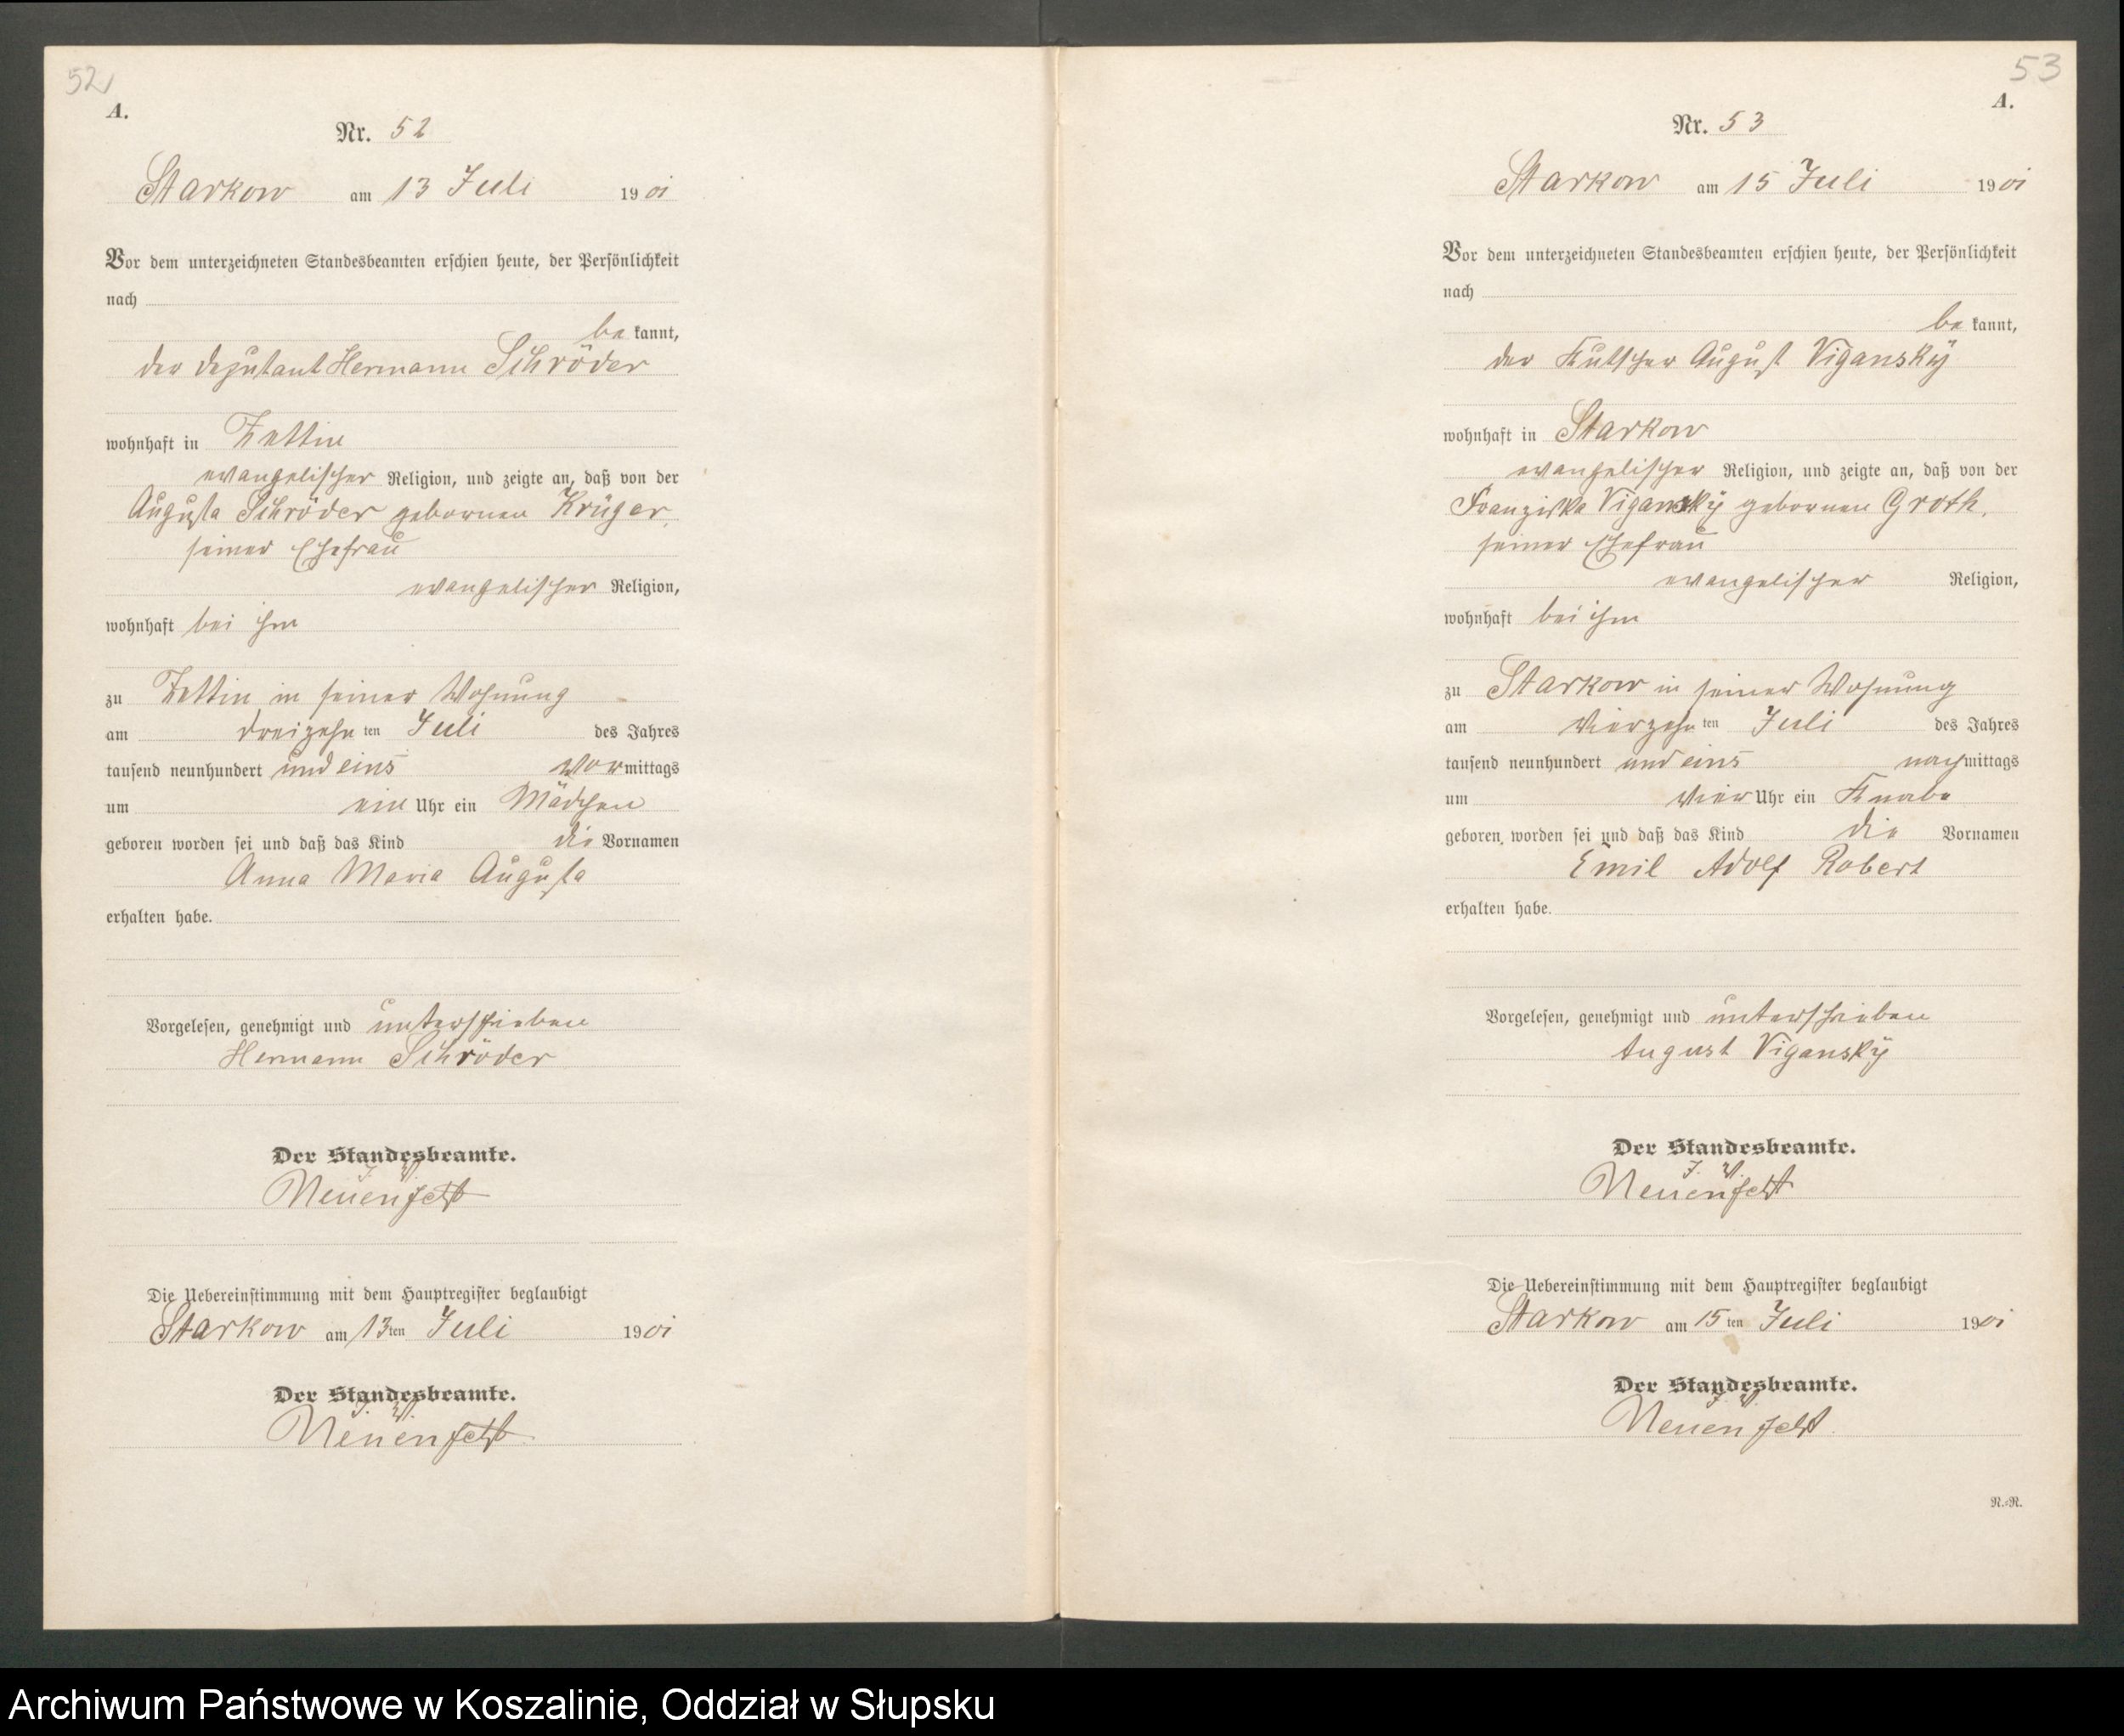 52
A.
Nr. 52
Starkow am 13 Juli 1901
Vor dem unterzeichneten Standesbeamten erschien heute, der Persönlichkeit
nach
bekannt,
der Deputant Hermann Schröder
wohnhaft in Zettin
evangelischer Religion, und zeigte an, daß von der
Augusta Schröder gebornen Krüger,
seiner Ehefrau
evangelischer Religion,
wohnhaft bei ihm
zu Zettin in seiner Wohnung
am dreizehnten Juli des Jahres
tausend neunhundert und eins Vormittags
um ein Uhr ein Mädchen
geboren worden sei und daß das Kind die Vornamen
Anna Maria Augusta
erhalten habe.
Vorgelesen, genehmigt und unterschrieben
Hermann Schröder
Der Standesbeamte.
J. V.
Die Uebereinstimmung mit dem Hauptregister beglaubigt
Starkow am 13ten Juli 1901
Der Standesbeamte.
J. V.
53
A.
Nr. 53
Starkow am 15 Juli 1901
Vor dem unterzeichneten Standesbeamten erschien heute, der Persönlichkeit
nach
bekannt,
der Kutscher August Vigansky
wohnhaft in Starkow
evangelischer Religion, und zeigte an, daß von der
Franziska Vigansky gebornen Groth,
seiner Ehefrau
evangelischer Religion,
wohnhaft bei ihm
zu Starkow in seiner Wohnung
am vierzehnten Juli des Jahres
tausend neunhundert und eins nachmittags
um vier Uhr ein Knabe
geboren worden sei und daß das Kind die Vornamen
Emil Adolf Robert
erhalten habe.
Vorgelesen, genehmigt und unterschrieben
August Vigansky
Der Standesbeamte.
J. V.
Die Uebereinstimmung mit dem Hauptregister beglaubigt
Starkow am 15ten Juli 1901
Der Standesbeamte.
J. V.
N.=N.
Archiwum Państwowe w Koszalinie, Oddział w Słupsku